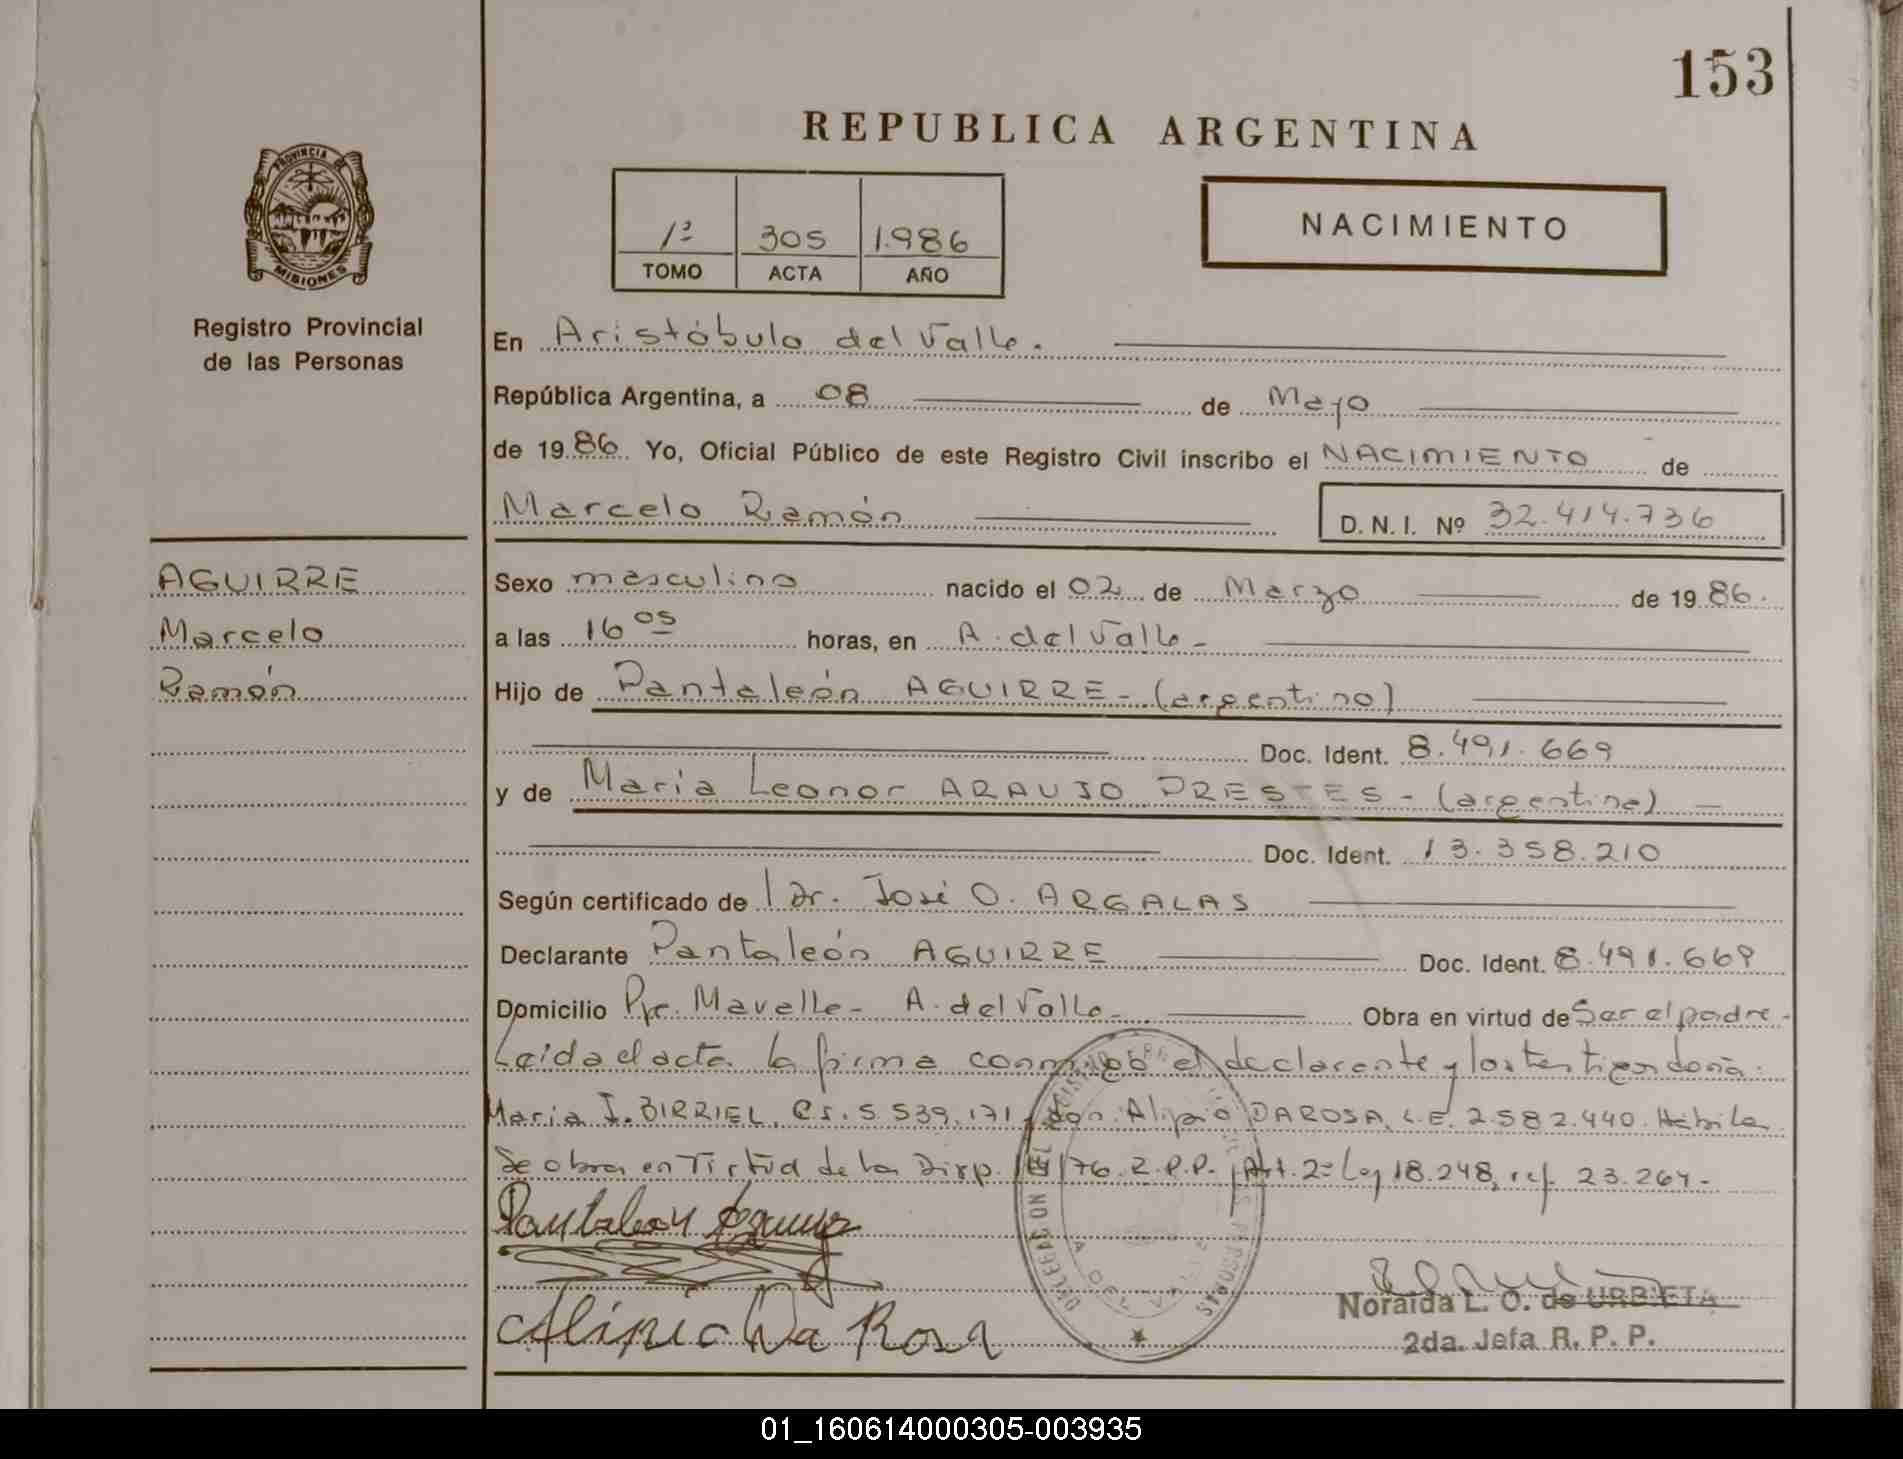 153
REPUBLICA ARGENTINA
PROVINCIA DE
MISIONES
Registro Provincial
de las Personas
1º 305 1.986
TOMO ACTA AÑO
NACIMIENTO
En Aristóbulo del Valle.
República Argentina, a 08 de Mayo
de 1986. Yo, Oficial Público de este Registro Civil inscribo el NACIMIENTO de
Marcelo Ramón D.N.I. Nº 32.414.736
AGUIRRE
Marcelo
Ramón
Sexo masculino nacido el 02 de Marzo de 1986.
a las 16 05 horas, en A. del Valle-
Hijo de Pantaleón AGUIRRE- (argentino)
Doc. Ident. 8.491.669
y de María Leonor ARAUJO PRESTES - (argentina)
Doc. Ident. 13.358.210
Según certificado de Dr. José O. ARGALAS
Declarante Pantaleón AGUIRRE Doc. Ident. 8.491.669
Domicilio A. del Valle- Obra en virtud de Ser el padre-
Leída el acta la firma conmigo el declarante y los testigos doña:
María I. BIRRIEL, C.I. 5.539.171 y don Alipio DAROSA, L.E. 2.582.440. Hábiles
Se obra en virtud de la Disp. /76.R.P.P. Art. 2º Ley 18.248, ref. 23.264-
Pantaleon Aguirre
Alipio Da Rosa
DELEGACION DEL REGISTRO
PERSONAS
Noraida L. O. de URBIETA
2da. Jefa R. P. P.
01_160614000305-003935